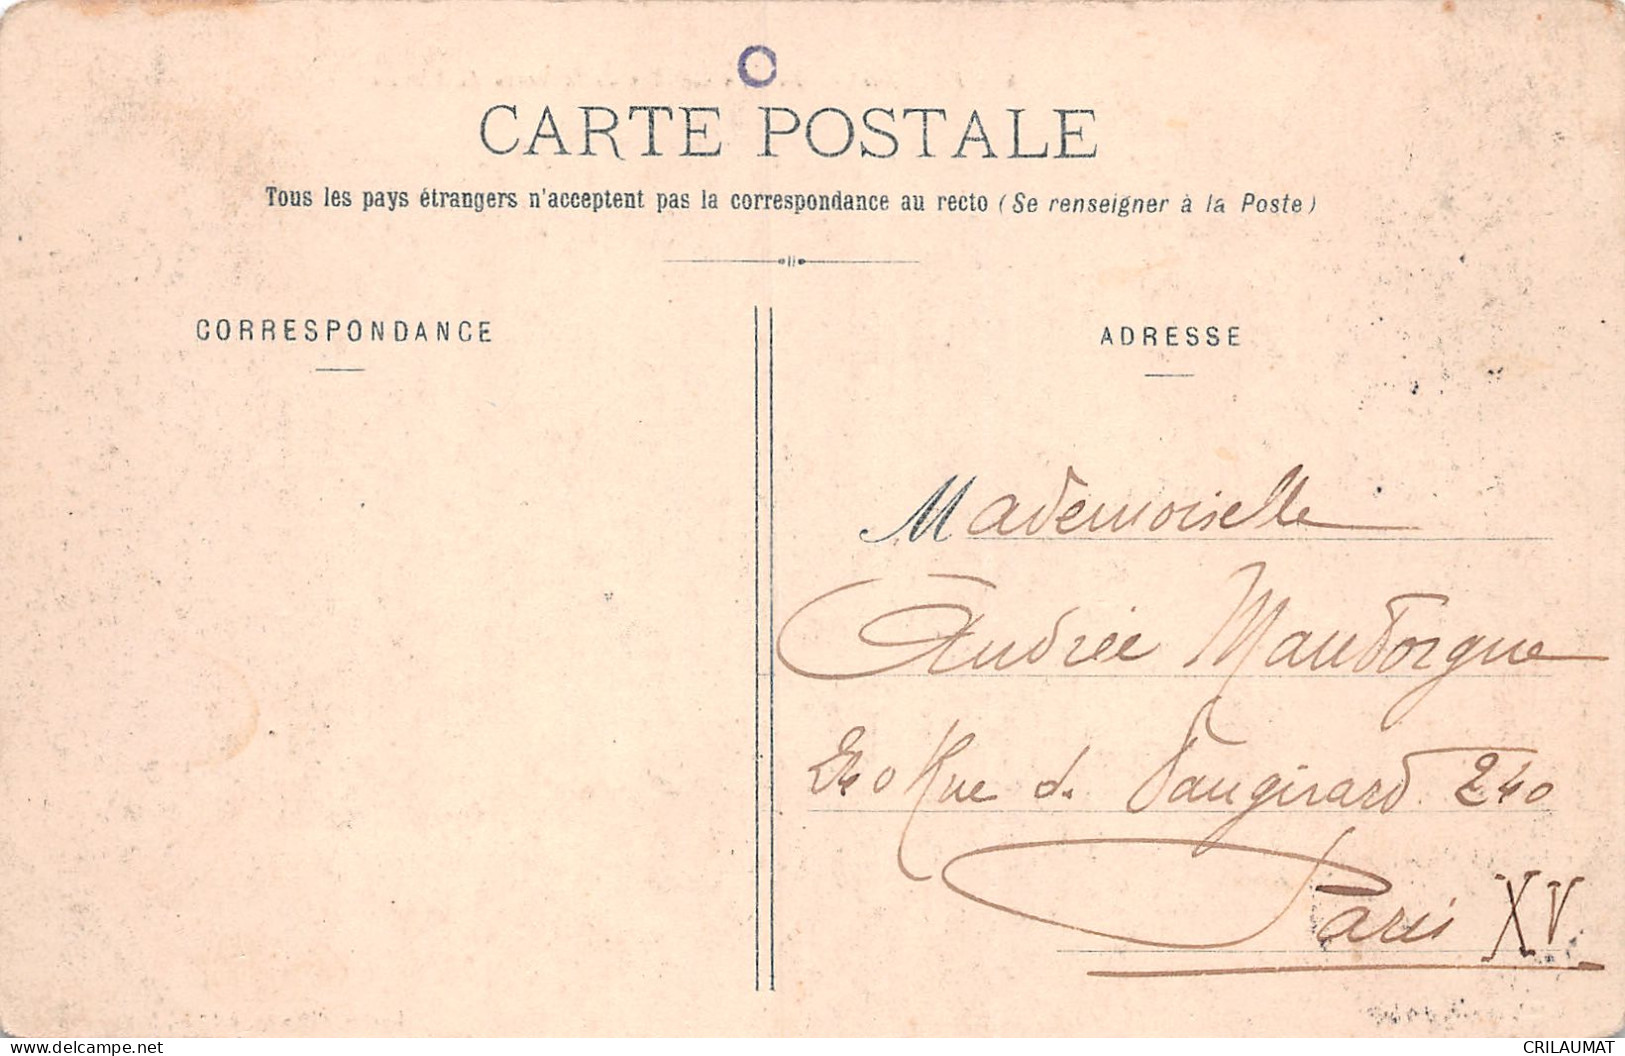 CARTE POSTALE
Tous les pays étrangers n'acceptent pas la correspondance au recto (Se renseigner à la Poste)
CORRESPONDANCE
ADRESSE
Mademoiselle
Andrée Maudorgue
240 Rue de Vaugirard 240
Paris XV
www.delcampe.net
CRILAUMAT